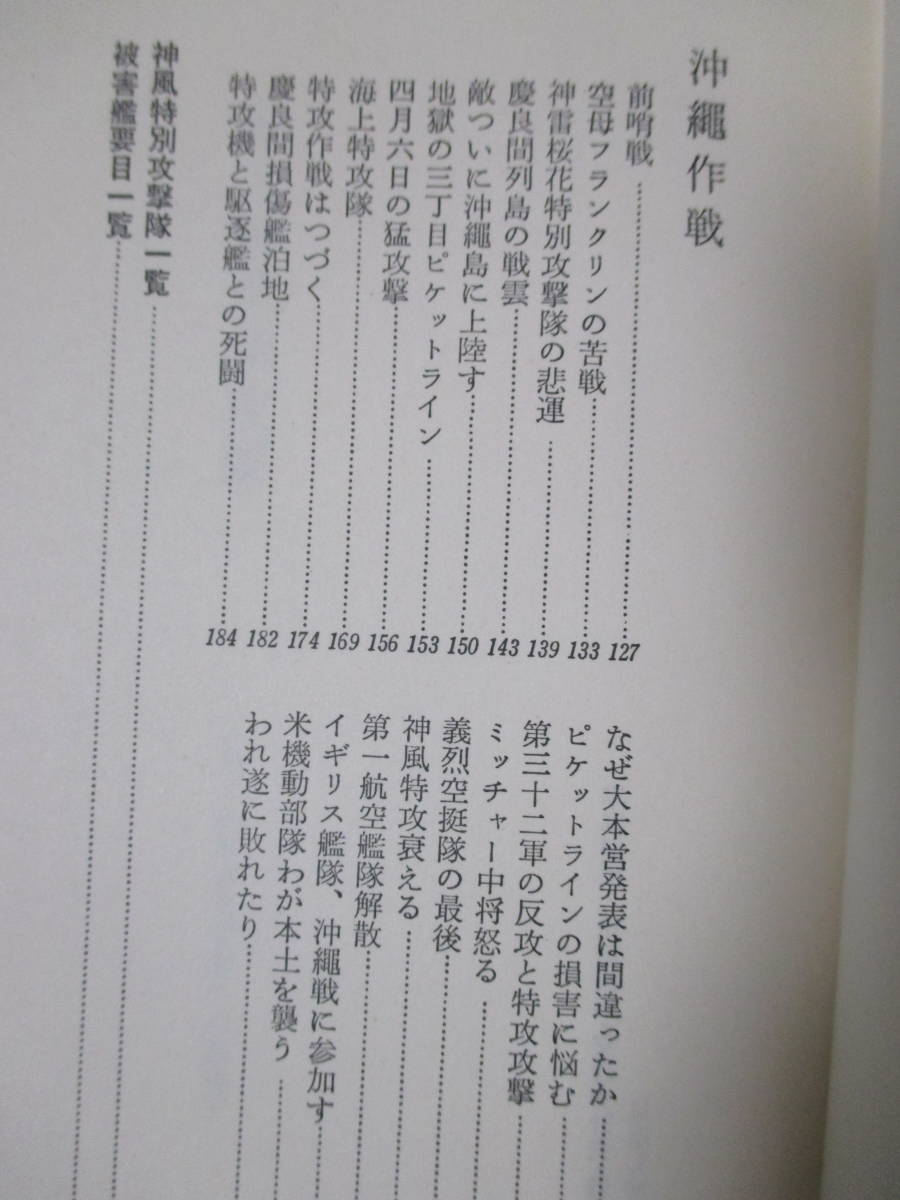 沖繩作戦
前哨戦……127
空母フランクリンの苦戦……133
神雷桜花特別攻撃隊の悲運……139
慶良間列島の戦雲……143
敵ついに沖繩島に上陸す……150
地獄の三丁目ピケットライン……153
四月六日の猛攻撃……156
海上特攻隊……169
特攻作戦はつづく……174
慶良間損傷艦泊地……182
特攻機と駆逐艦との死闘……184
なぜ大本営発表は間違ったか……
ピケットラインの損害に悩む……
第三十二軍の反攻と特攻攻撃……
ミッチャー中将怒る……
義烈空挺隊の最後……
神風特攻衰える……
第一航空艦隊解散……
イギリス艦隊、沖繩戦に参加す……
米機動部隊わが本土を襲う……
われ遂に敗れたり……
神風特別攻撃隊一覧……
被害艦要目一覧……